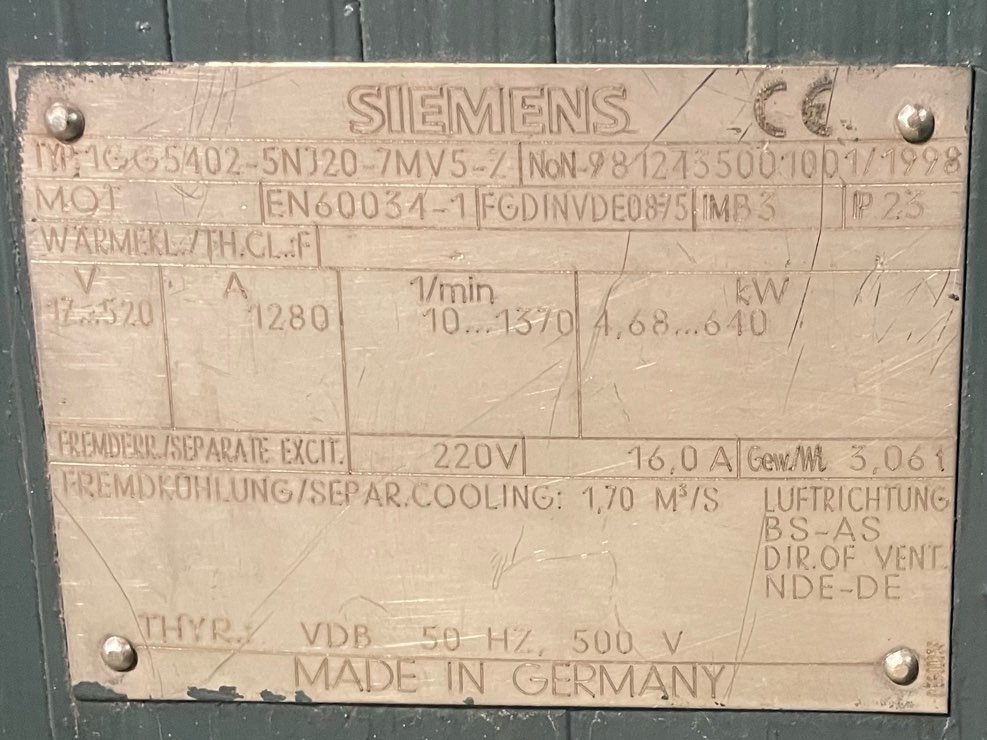 SIEMENS CE
TYP: 1GG5402-5NJ20-7MV5-Z NoN-9812435001001/1998
MOT EN60034-1 FGDINVDE0875 IMB3 IP 23
WÄRMEKL./TH.CL.:F
V A 1/min kW
17...520 1280 10...1370 4,68...640
FREMDERR./SEPARATE EXCIT. 220V 16,0 A Gew./Wt. 3,06t
FREMDKÜHLUNG/SEPAR.COOLING: 1,70 M³/S LUFTRICHTUNG
BS-AS
DIR.OF VENT.
NDE-DE
THYR.: VDB 50 HZ, 500 V
MADE IN GERMANY